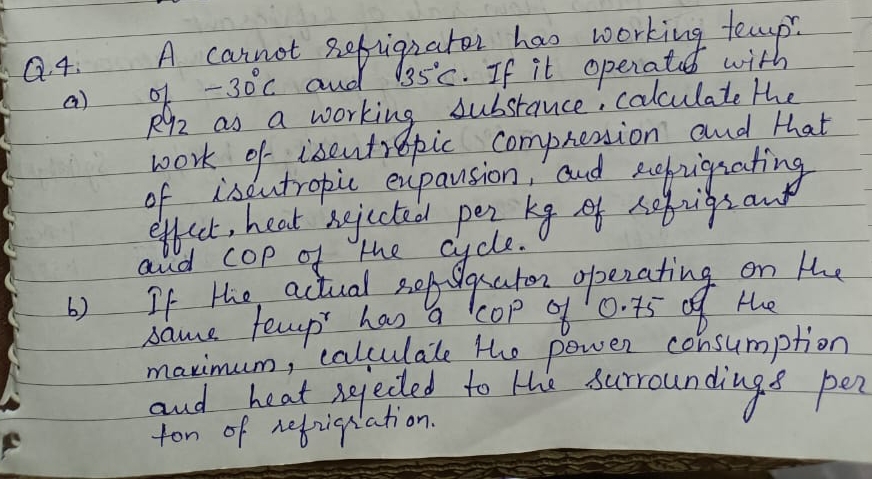 Q.4. A carnot refrigrator has working tempr.
a) of -30°C and 35°C. If it operates with
R12 as a working substance, calculate the
work of isentropic compression and that
of isentropic expansion, and refrigrating
effect, heat rejected per kg of refrigrant
and COP of the cycle.
b) If the actual refrigrator operating on the
same tempr has a COP of 0.75 of the
maximum, calculate the power consumption
and heat rejected to the surroundings per
ton of refrigration.